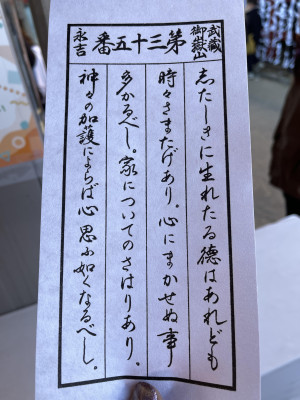 武蔵
御嶽山
第三十五番
永吉
志たしきに生れたる徳はあれども
時々さまたげあり。心にまかせぬ事
多かるべし。家についてのさはりあり、
神々の加護によらば心思ふ如くなるべし。